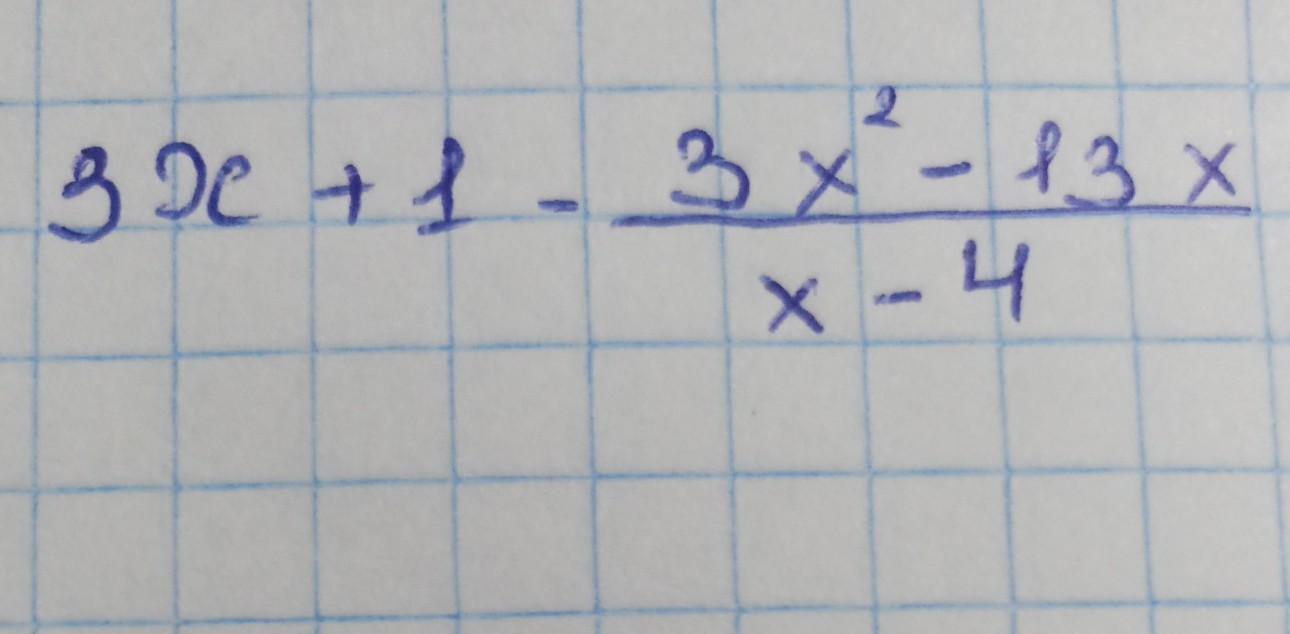 3x + 1 - \frac{3x^2 - 13x}{x - 4}